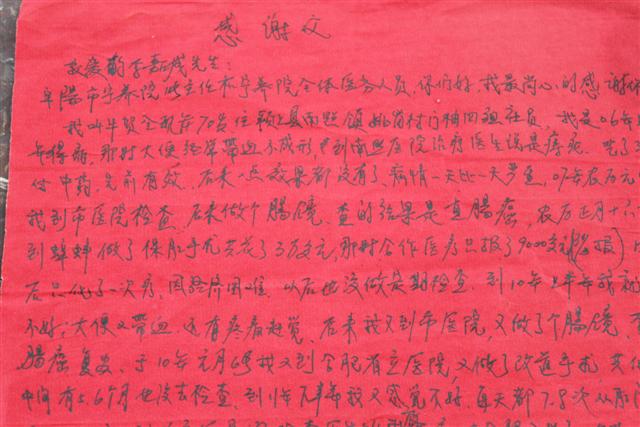 感谢文
敬爱的李嘉诚先生:
阜阳市宁养院 主任 宁养院全体医务人员,你们好,我最尚心的感谢你
我叫牛贺全 现年70岁 住颍上县南照镇姚岗村 社员,我是06年
年得病,那时大便经常带血不成形,中到南照医院治疗医生说是痔疮.吃了
付中药,先前有效.后来一点效果都没有了,病情一天比一天严重,07年农历元
我到市医院检查.后来做个肠镜.查的结果是直肠癌,农历正月十
到蚌蚌做了保肛手术共花了3万多元,那时合作医疗只报了9000多元
后只化了一次疗,因经济困难.以后也没做定期检查.到10年上半年我
不好,大便又带血.还有疼痛
后来我又到市医院,又做了个肠镜.
肠癌复发.于10年元月6号我又到合肥省立医院,又做了改道手术,共
中间有5.6个月也没去检查.到11年 我又感觉不好.每天都7.8次从肛